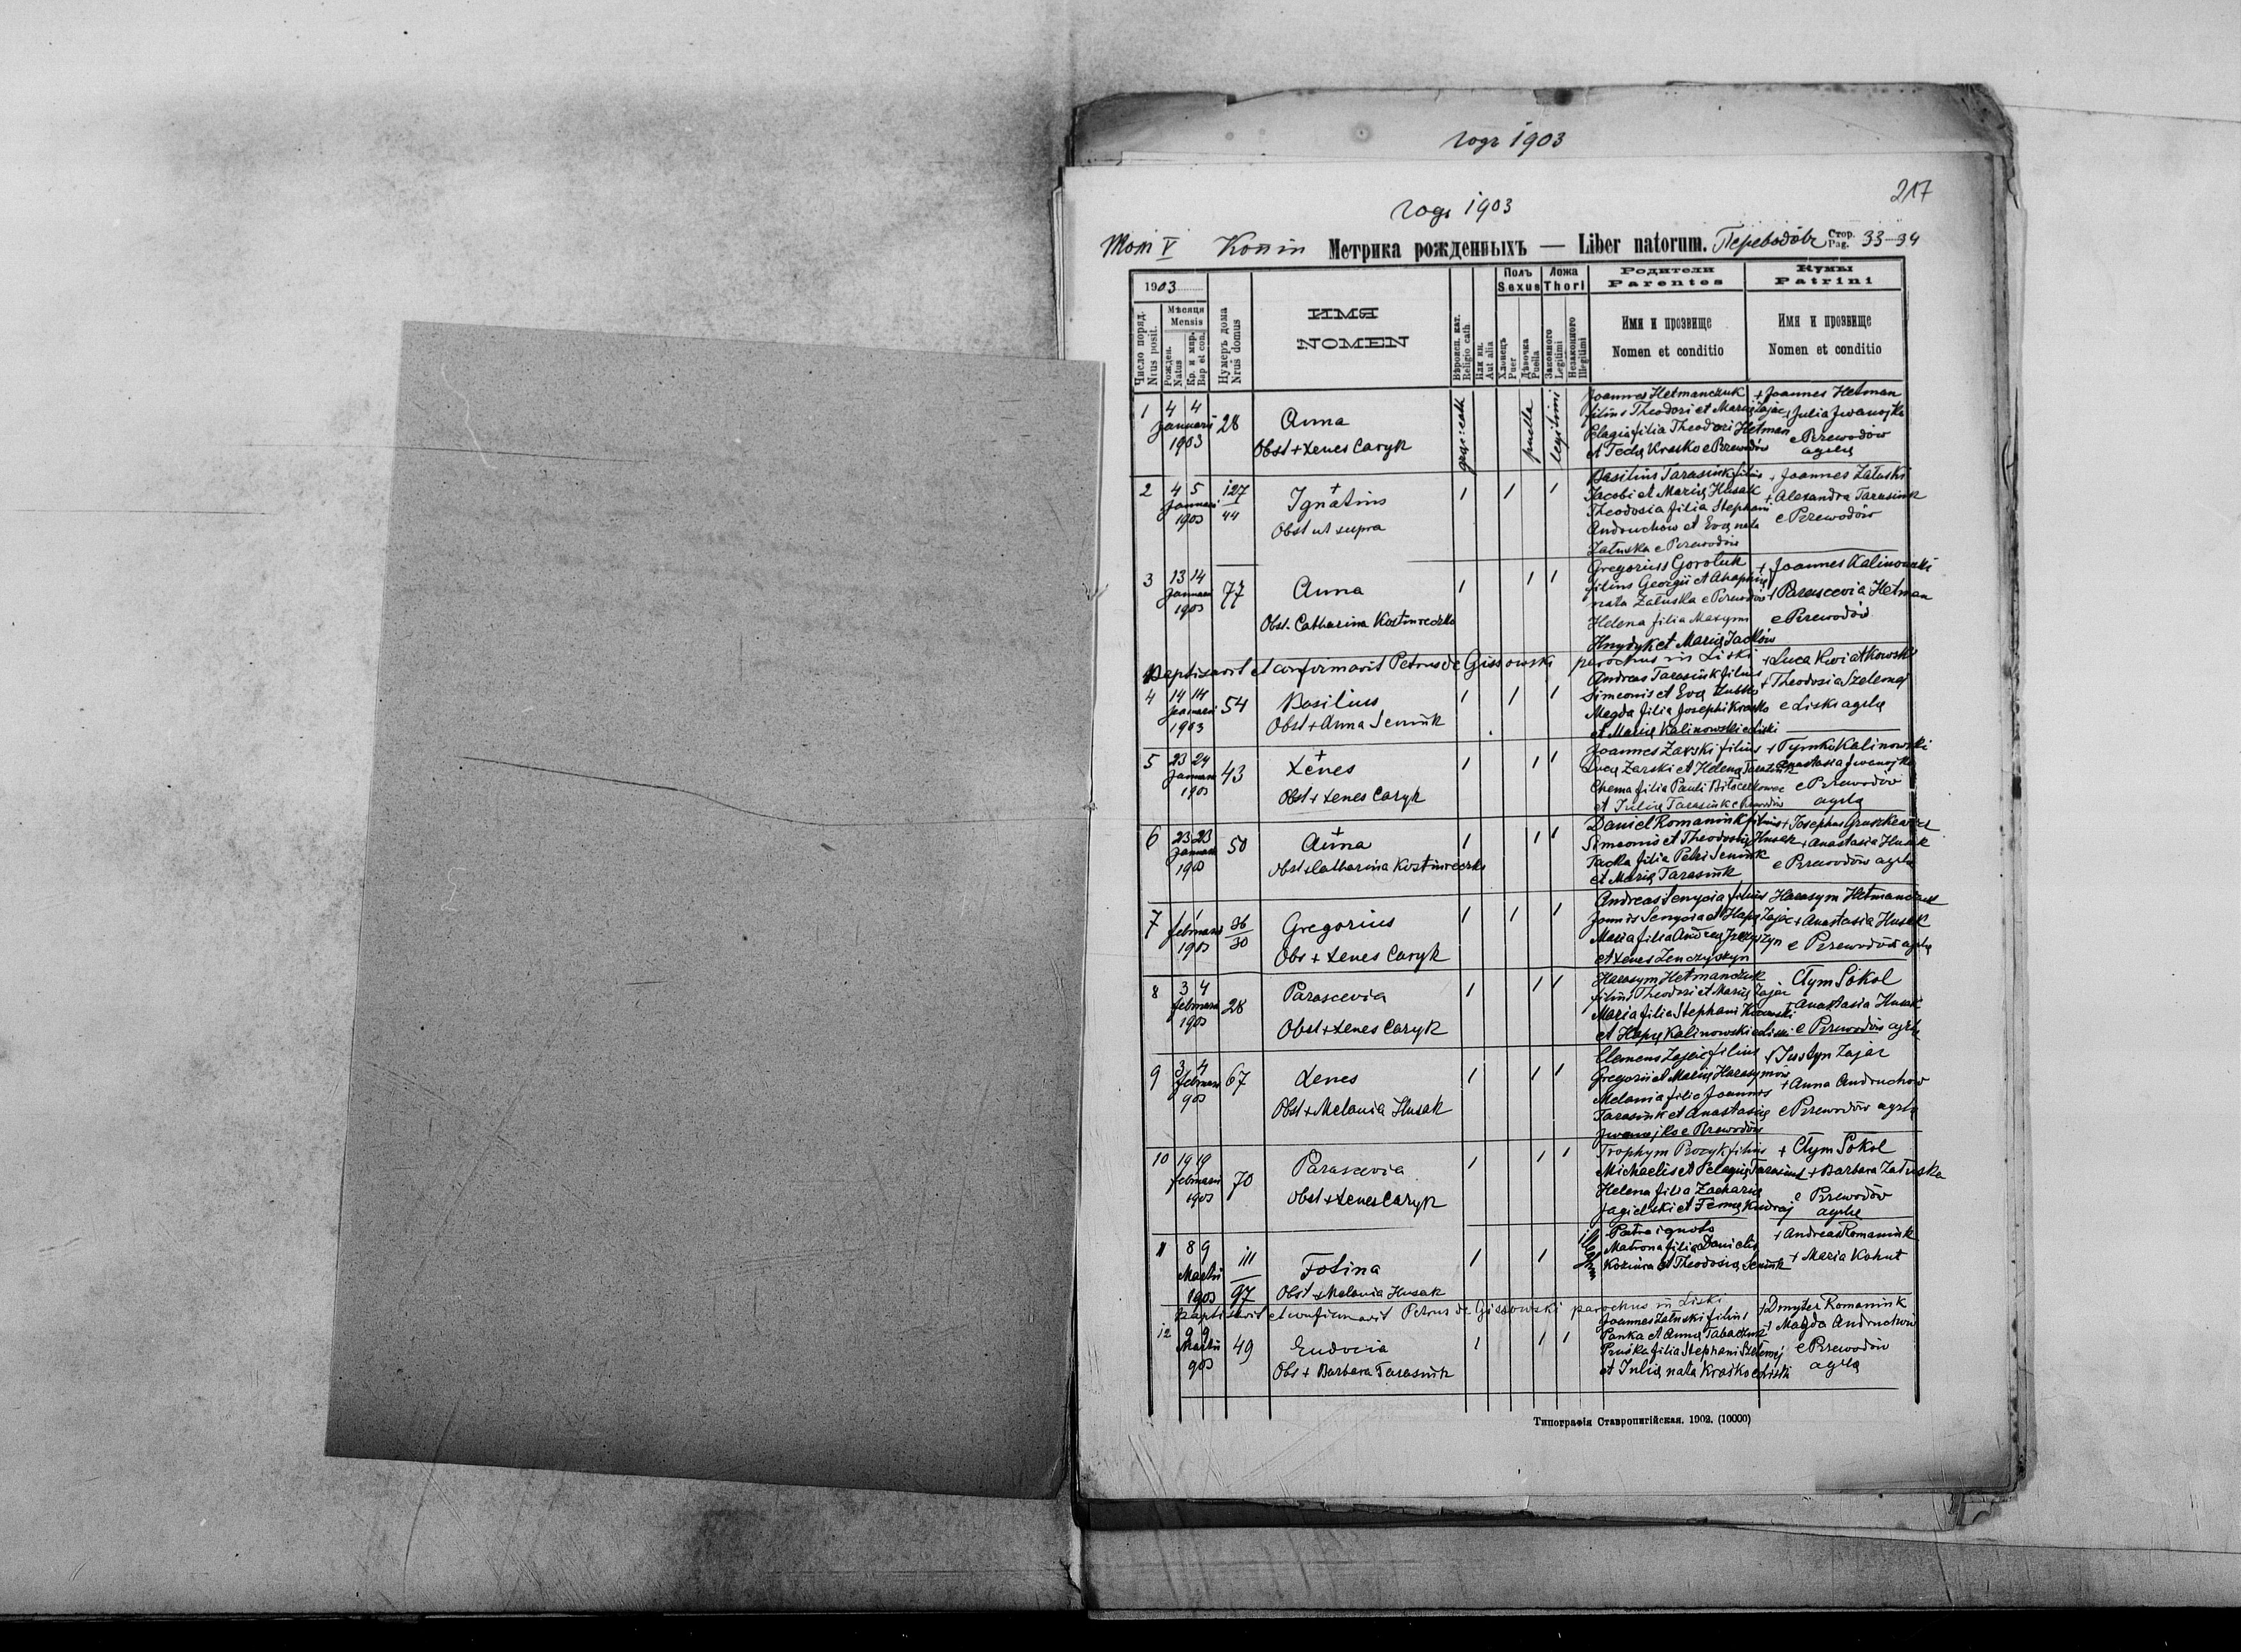 годъ 1903
217
годъ 1903
Том V Копія Метрика рожденныхъ — Liber natorum. Переводôвъ Стор. Pag. 33-34
1903
Число поряд. Nrus posit.
Мѣсяця Mensis
Рожден. Natus
Кр. и мѵр. Bap et con.
Нумеръ дома Nrus domus
ИМЯ
NOMEN
Вѣроисп. кат. Religio cath
Или ин. Aut alia
Полъ
Sexus
Хлопець Puer
Дѣвочка Puella
Ложа
Thori
Законного Legitimi
Незаконного Illegitimi
Родители
Parentes
Имя и прозвище
Nomen et conditio
Кумы
Patrini
Имя и прозвище
Nomen et conditio
1 4 4 Januarii 1903 28
Anna
Obst + Xenes Caryk
graec: cath puella legitimi
Joannes Hetmanczuk
filius Theodori et Marię Zajac
Pelagia filia Theodori Hetman
et Teclę Krasko e Przewodów
+ Joannes Hetman
+ Julia Iwanejko
e Przewodów
agrlę
2 4 5 Januarii 1903 127/44
+
Ignatius
Obst ut supra
Basilius Tarasiuk filius
Jacobi et Marię Husak
Theodosia filia Stephani
Andruchow et Evę nata
Załuska e Przewodów
+ Joannes Załuski
+ Alexandra Tarasiuk
e Przewodów
3 13 14 Januarii 1903 77
Anna
Obst. Catharina
Gregorius Goroluk
filius Georgii et Ahaphię
nata Załuska e Przewodów
Helena filia Maxymi
Hnydyk et Marię Jacków
+ Joannes Kalinowski
+ Parascevia Hetman
e Przewodów
Baptisavit et confirmavit Petrus de Gissowski parochus in Liski
4 14 14 Januarii 1903 54
Basilius
Obst + Anna Seniuk
Andreas Tarasiuk filius
Simeonis et Evę
Magda filia Josephi Krasko
et Marię Kalinowski e Liski
+ Luca Kwiatkowski
+ Theodosia Szelemej
e Liski agrlę
5 23 24 Januarii 1903 43
+
Xenes
Obst + Xenes Caryk
Joannes Zarski filius
Lucę Zarski et Helenę Tarasiuk
Chema filia Pauli
et Julię Tarasiuk e Przewodów
+ Tymko Kalinowski
Anastasia Iwanejko
e Przewodów
agrlę
6 23 23 Januarii 1903 50
+
Anna
Obst Catharina
Daniel Romaniuk filius
Simeonis et Theodosię Husak
Tacka filia Petri Seniuk
et Marię Tarasiuk
+ Josephus Gruszkewicz
+ Anastasia Husak
e Przewodów agrlę
7 1 februarii 1903 36/30
Gregorius
Obs + Xenes Caryk
Andreas Senycia filius
Joannis Senycia et Hapę Zajac
Maria filia Andreę
et Xenes
Harasym Hetmanczuk
+ Anastasia Husak
e Przewodów agrlę
8 3 4 februarii 1903 28
Parascevia
Obst + Xenes Caryk
Harasym Hetmanczuk
filius Theodori et Marię Zajac
Maria filia Stephani
et Hapę Kalinowski e Liski
Clym Sokol
Anastasia Husak
e Przewodów agrlę
9 3 4 februarii 903 67
Xenes
Obst + Melania Husak
Clemens Zajac filius
Gregorii et Marię Harasymów
Melania filia Joannis
Tarasiuk et Anastasię
Iwanejko e Przewodów
+ Justyn Zajac
+ Anna Andruchow
e Przewodów agrlę
10 19 19 februarii 1903 70
Parascevia
Obst + Xenes Caryk
Trophym Procyk filius
Michaelis et Pelagię Tarasiuk
Helena filia Zacharię
Jagielski et Femę Kudraj
+ Clym Sokol
+ Barbara Załuska
e Przewodów
agrlę
11 8 9 Martii 1903 111/97
Fotina
Obst + Melania Husak
illegitimi
Patre ignoto
Matrona filia Danielis
Kozina et Theodosię Seniuk
+ Andreas Romaniuk
+ Maria Kohut
Baptisavit et confirmavit Petrus de Gissowski parochus in Liski
12 9 9 Martii 903 49
Eudocia
Obs + Barbara Tarasiuk
Joannes Załuski filius
Panka et Annę Tabaczuk
Pruśka filia Stephani Szelemej
et Julię nata Krasko e Liski
+ Dmyter Romaniuk
+ Magda Andruchow
e Przewodów
agrlę
Типографія Ставропигійская. 1902. (10000)